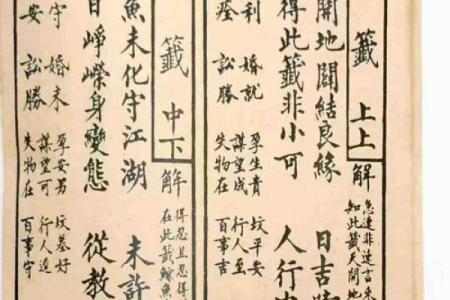 籤 上上 解
急速非速言未
知此籤天開地
開地闢結良緣 日吉時
得此籤非小可 人行中
利 婚就
痊 訟勝
孕生貴 坟平安
謀望成 行人至
失物在 百事吉
籤 中下 解
得忍且忍得
在此籤 魚
魚未化守江湖 未許
日崢嶸身變態 從教
守 婚未
安 訟勝
孕安男 坟墓好
謀望可 行人
失物在 百事守